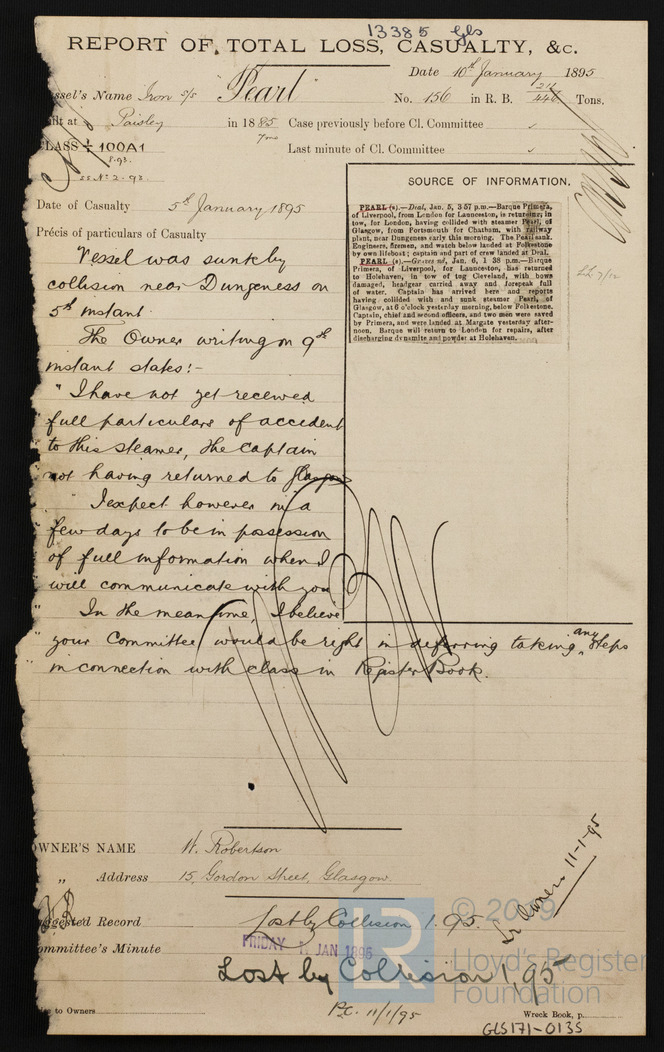 13385 Gls
REPORT OF TOTAL LOSS, CASUALTY, &c.
Date 10th January 1895
ssel's Name Iron s/s "Pearl"
No. 156 in R. B. Tons.
ilt at Paisley in 1885
7mo
Case previously before Cl. Committee
CLASS 100A1
8.93.
Last minute of Cl. Committee
ss No 2-93.
SOURCE OF INFORMATION.
Date of Casualty 5th January 1895
Précis of particulars of Casualty
PEARL (s).—Deal, Jan. 5, 3 57 p.m.—Barque Primera,
of Liverpool, from London for Launceston, is returning, in
tow, for London, having collided with steamer Pearl, of
Glasgow, from Portsmouth for Chatham, with railway
plant, near Dungeness early this morning. The Pearl sank.
Engineers, firemen, and watch below landed at Folkestone
by own lifeboat; captain and part of crew landed at Deal.
PEARL (s).—Gravesend, Jan. 6, 1 38 p.m.—Barque
Primera, of Liverpool, for Launceston, has returned
to Holehaven, in tow of tug Cleveland, with bows
damaged, headgear carried away and forepeak full
of water. Captain has arrived here and reports
having collided with and sunk steamer Pearl, of
Glasgow, at 6 o'clock yesterday morning, below Folkestone.
Captain, chief and second officers, and two men were saved
by Primera, and were landed at Margate yesterday after-
noon. Barque will return to London for repairs, after
discharging dynamite and powder at Holehaven.
Vessel was sunk by
collision near Dungeness on
5th instant.
The Owner writing on 9th
instant states:-
"I have not yet received
full particulars of accident
to this steamer, the Captain
not having returned to Glasgow
" I expect however in a
few days to be in possession
of full information when I
will communicate with you
" In the meantime, I believe
" your Committee would be right in deferring taking any steps
in connection with class in Register Book.
OWNER'S NAME W. Robertson
" Address 15, Gordon Street, Glasgow
ggested Record Lost by Collision 1.95.
ommittee's Minute FRIDAY 11 JAN 1895
Lost by Collision 1,95
te to Owners
11/1/95
11-1-95
Wreck Book, p.
GLS171-0135
© 2019
Lloyd's Register
Foundation
LR